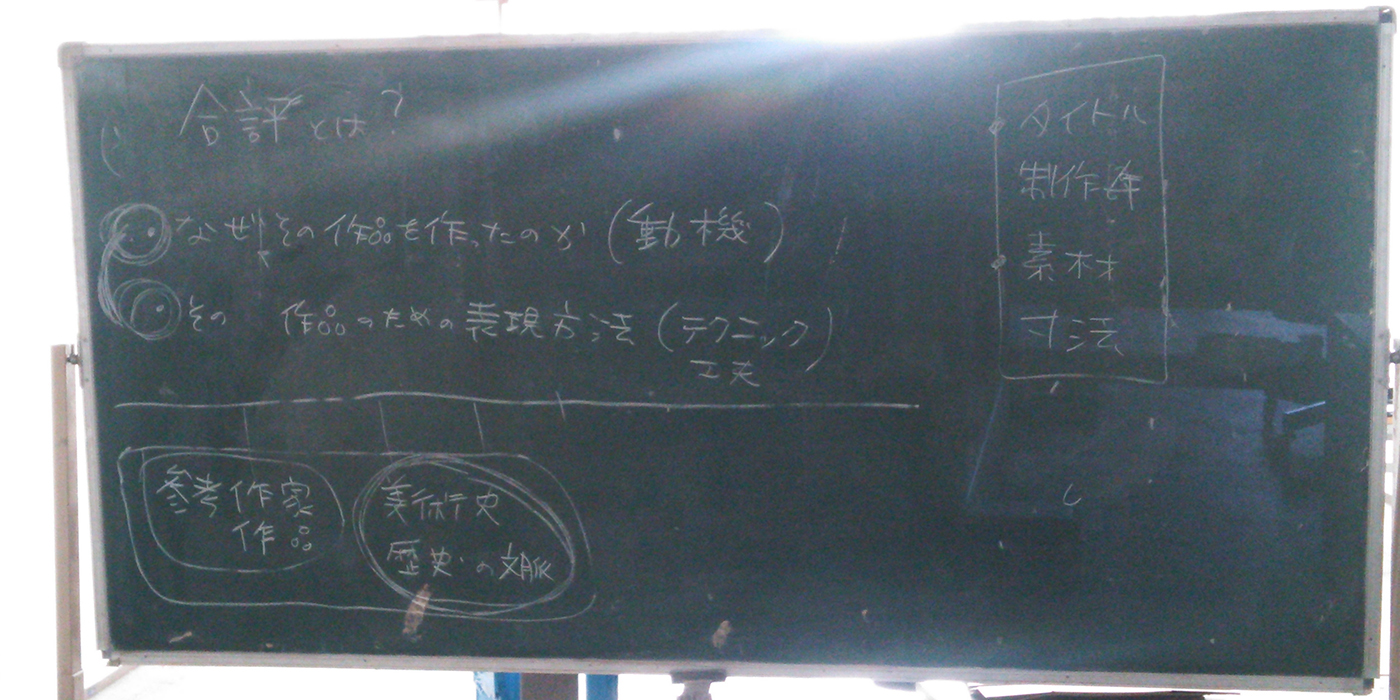 合評とは?
なぜその作品を作ったのか(動機)
その 作品のための表現方法(テクニック)
工夫
参考作家
作品
美術史
歴史の文脈
タイトル
制作年
素材
寸法